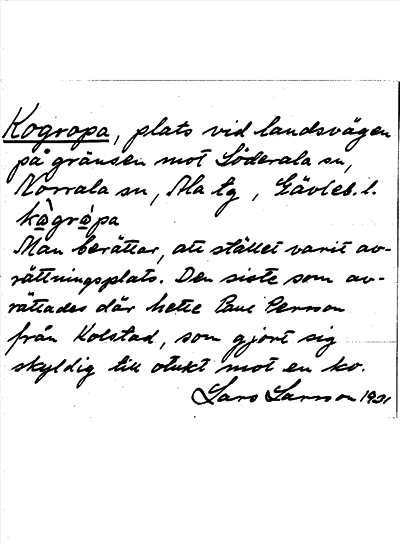 Kogropa, plats vid landsvägen
på gränsen mot Söderala sn,
Norrala sn, Ala tg, Gävleb. l.
kògròpa
Man berättar, att stället varit av-
rättningsplats. Den siste som av-
rättades där hette Paul Persson
från Kolstad, som gjort sig
skyldig till otukt mot en ko.
Lars Larsson